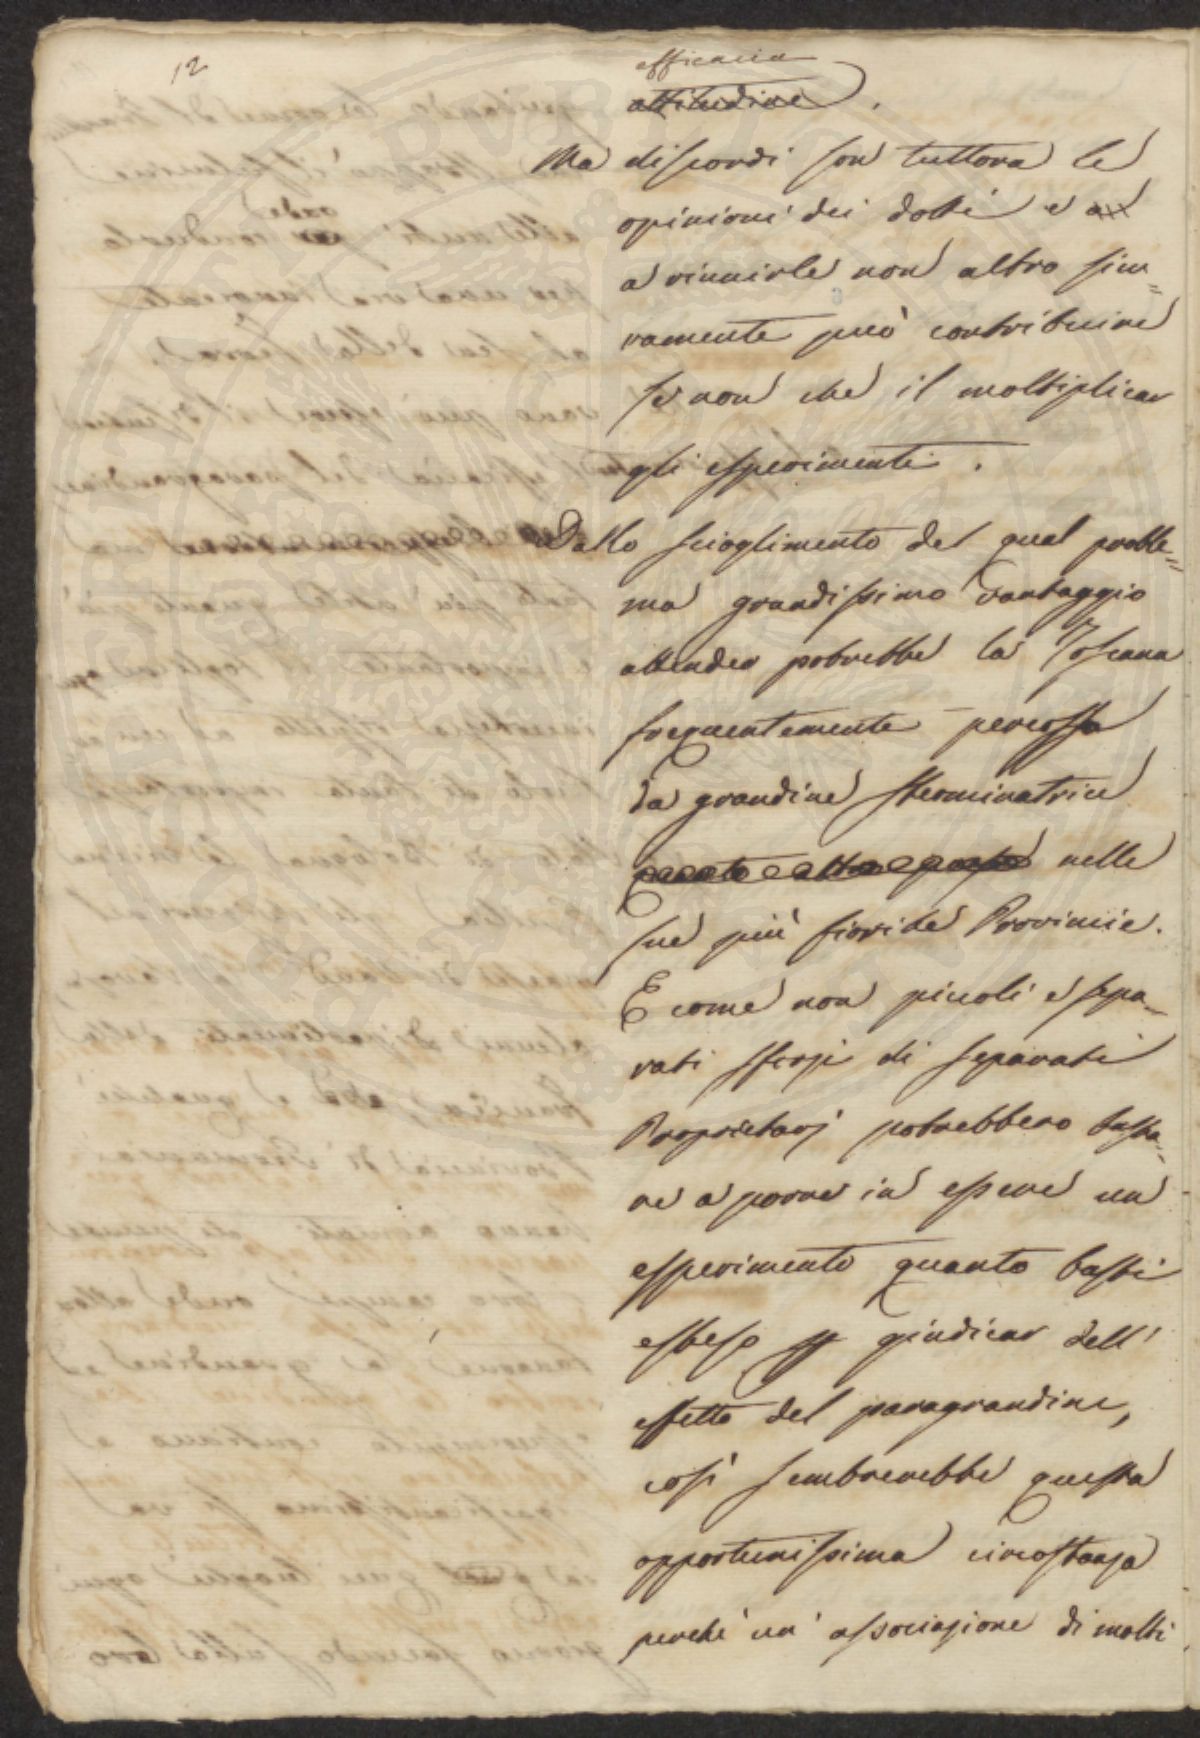 12
efficacia
attitudine.
Ma discordi son tuttora le
opinioni dei dotti e a
a riunirle non altro sicu=
ramente può contribuire
se non che il moltiplicar
gli esperimenti.
Dallo scioglimento del qual proble=
ma grandissimo vantaggio
attender potrebbe la Toscana
frequentemente percossa
da grandine sterminatrice
quanto altra nelle
sue più fiorite Provincie.
E come non piccoli e sepa=
rati sforzi di separati
Proprietarj potrebbero basta=
re a porre in essere un
esperimento quanto basti
esteso p giudicar dell'
effetto del paragrandine,
così sembrerebbe questa
opportunissima circostanza
perchè un' associazione di molti